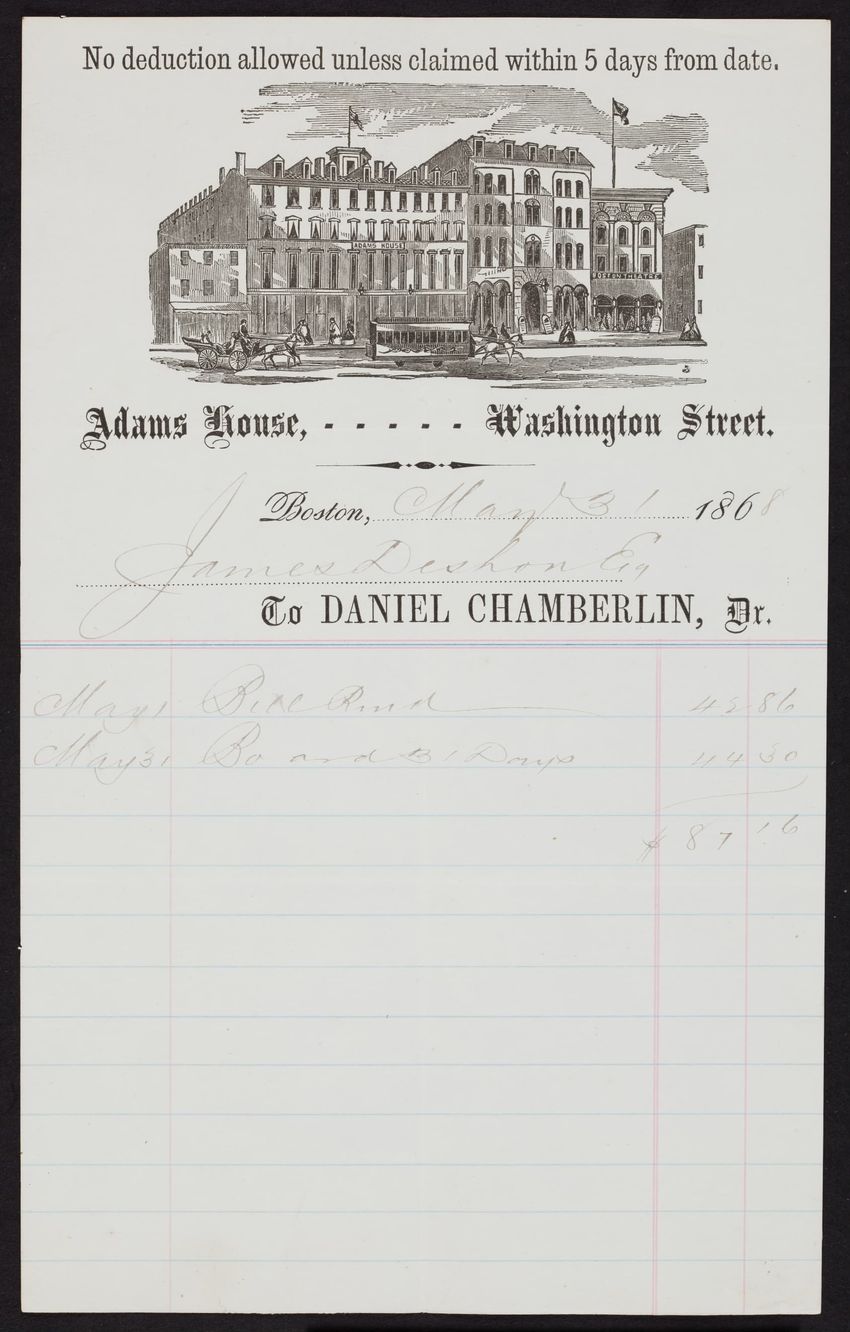 No deduction allowed unless claimed within 5 days from date.
ADAMS HOUSE
BOSTON THEATRE
Adams House, - - - - - Washington Street.
Boston, May 31 1868
James Deshon Esq
To DANIEL CHAMBERLIN, Dr.
May 1 Bill Rend 42 86
May 31 Board 31 Days 44 30
$ 87 16